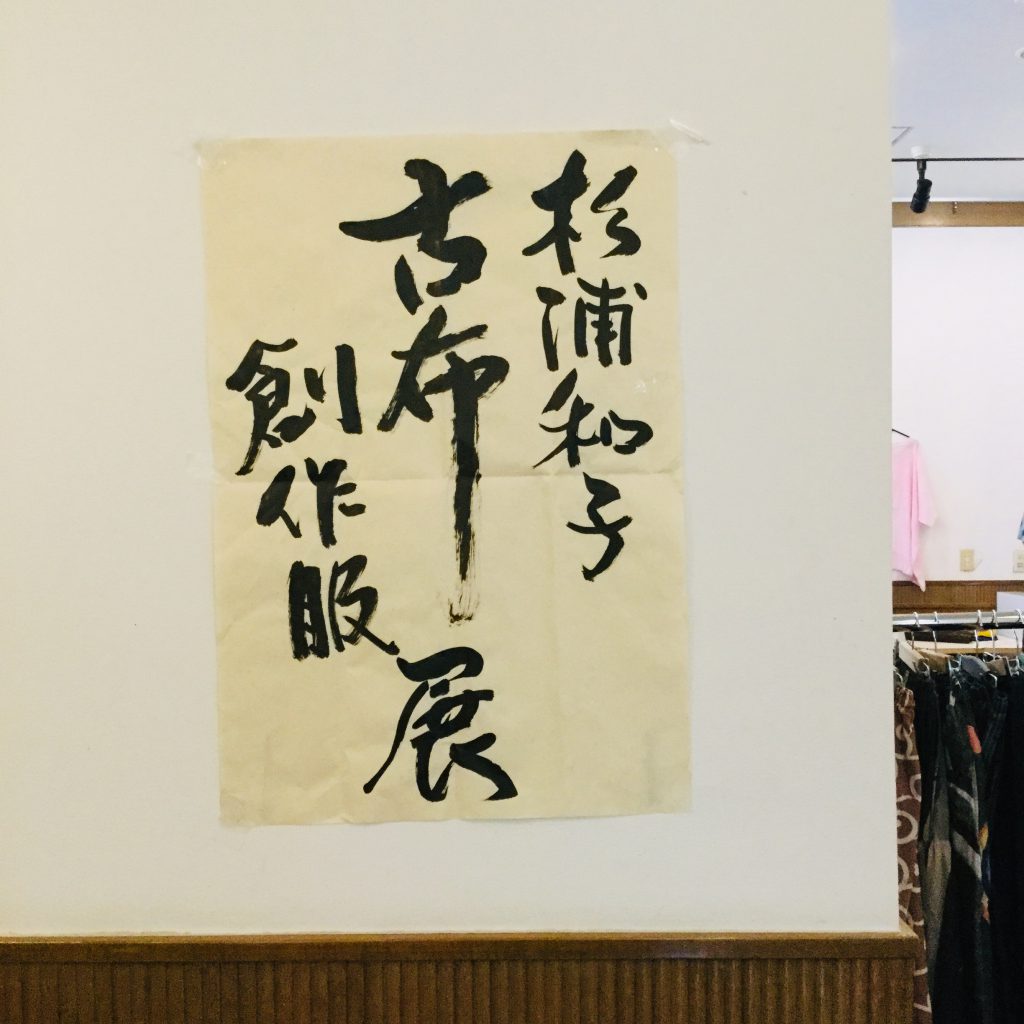 杉浦和子
古布展
創作服